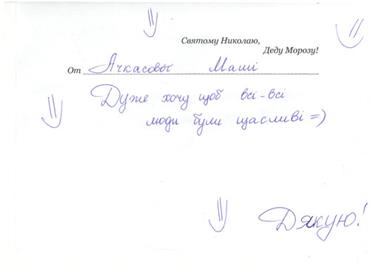 Святому Николаю,
Деду Морозу!
От Ачкасової Маші
Дуже хочу щоб всі-всі
люди були щасливі =)
Дякую!